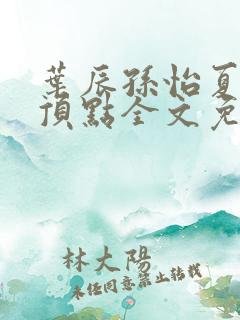 葉辰孫怡夏
頂點全文免
林大陽
未經同意禁止轉載